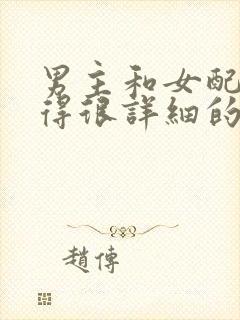 男主和女配
得很詳細的
趙傳